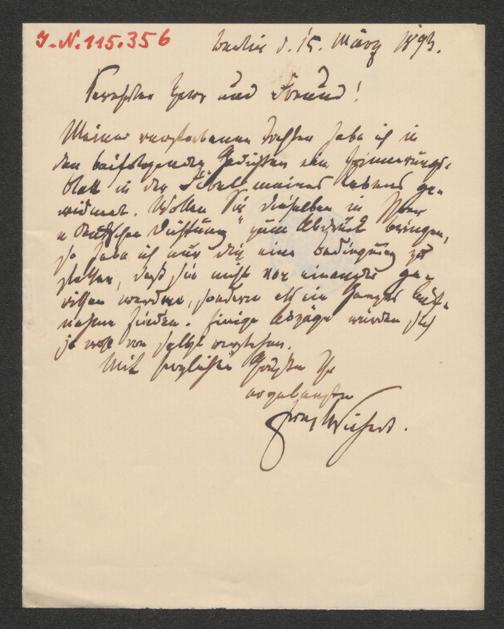 I.-N. 115.356
Berlin d. 15. März 1893.
Verehrter Herr und Freund!
Meiner verstorbenen Tochter habe ich in
den beifolgenden Gedichten ein Erinnerungs-
blatt in der Bibel meines Lebens ge-
widmet. Wollen Sie dieselben in Ihrer
"Deutschen Dichtung" zum Abdruck bringen,
so habe ich nur die eine Bedingung zu
stellen, daß sie nicht von einander ge-
rissen werden, sondern als ein Ganzes Auf-
nahme finden. Einige Abzüge würden sich
ja wohl von selbst verstehen.
Mit herzlichen Grüßen Ihr
ergebenster
Ernst Wichert.